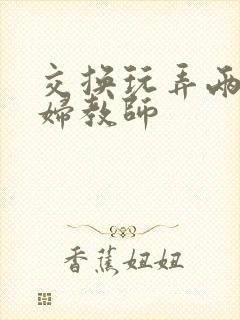 交换玩弄两
婦教師
香蕉妞妞